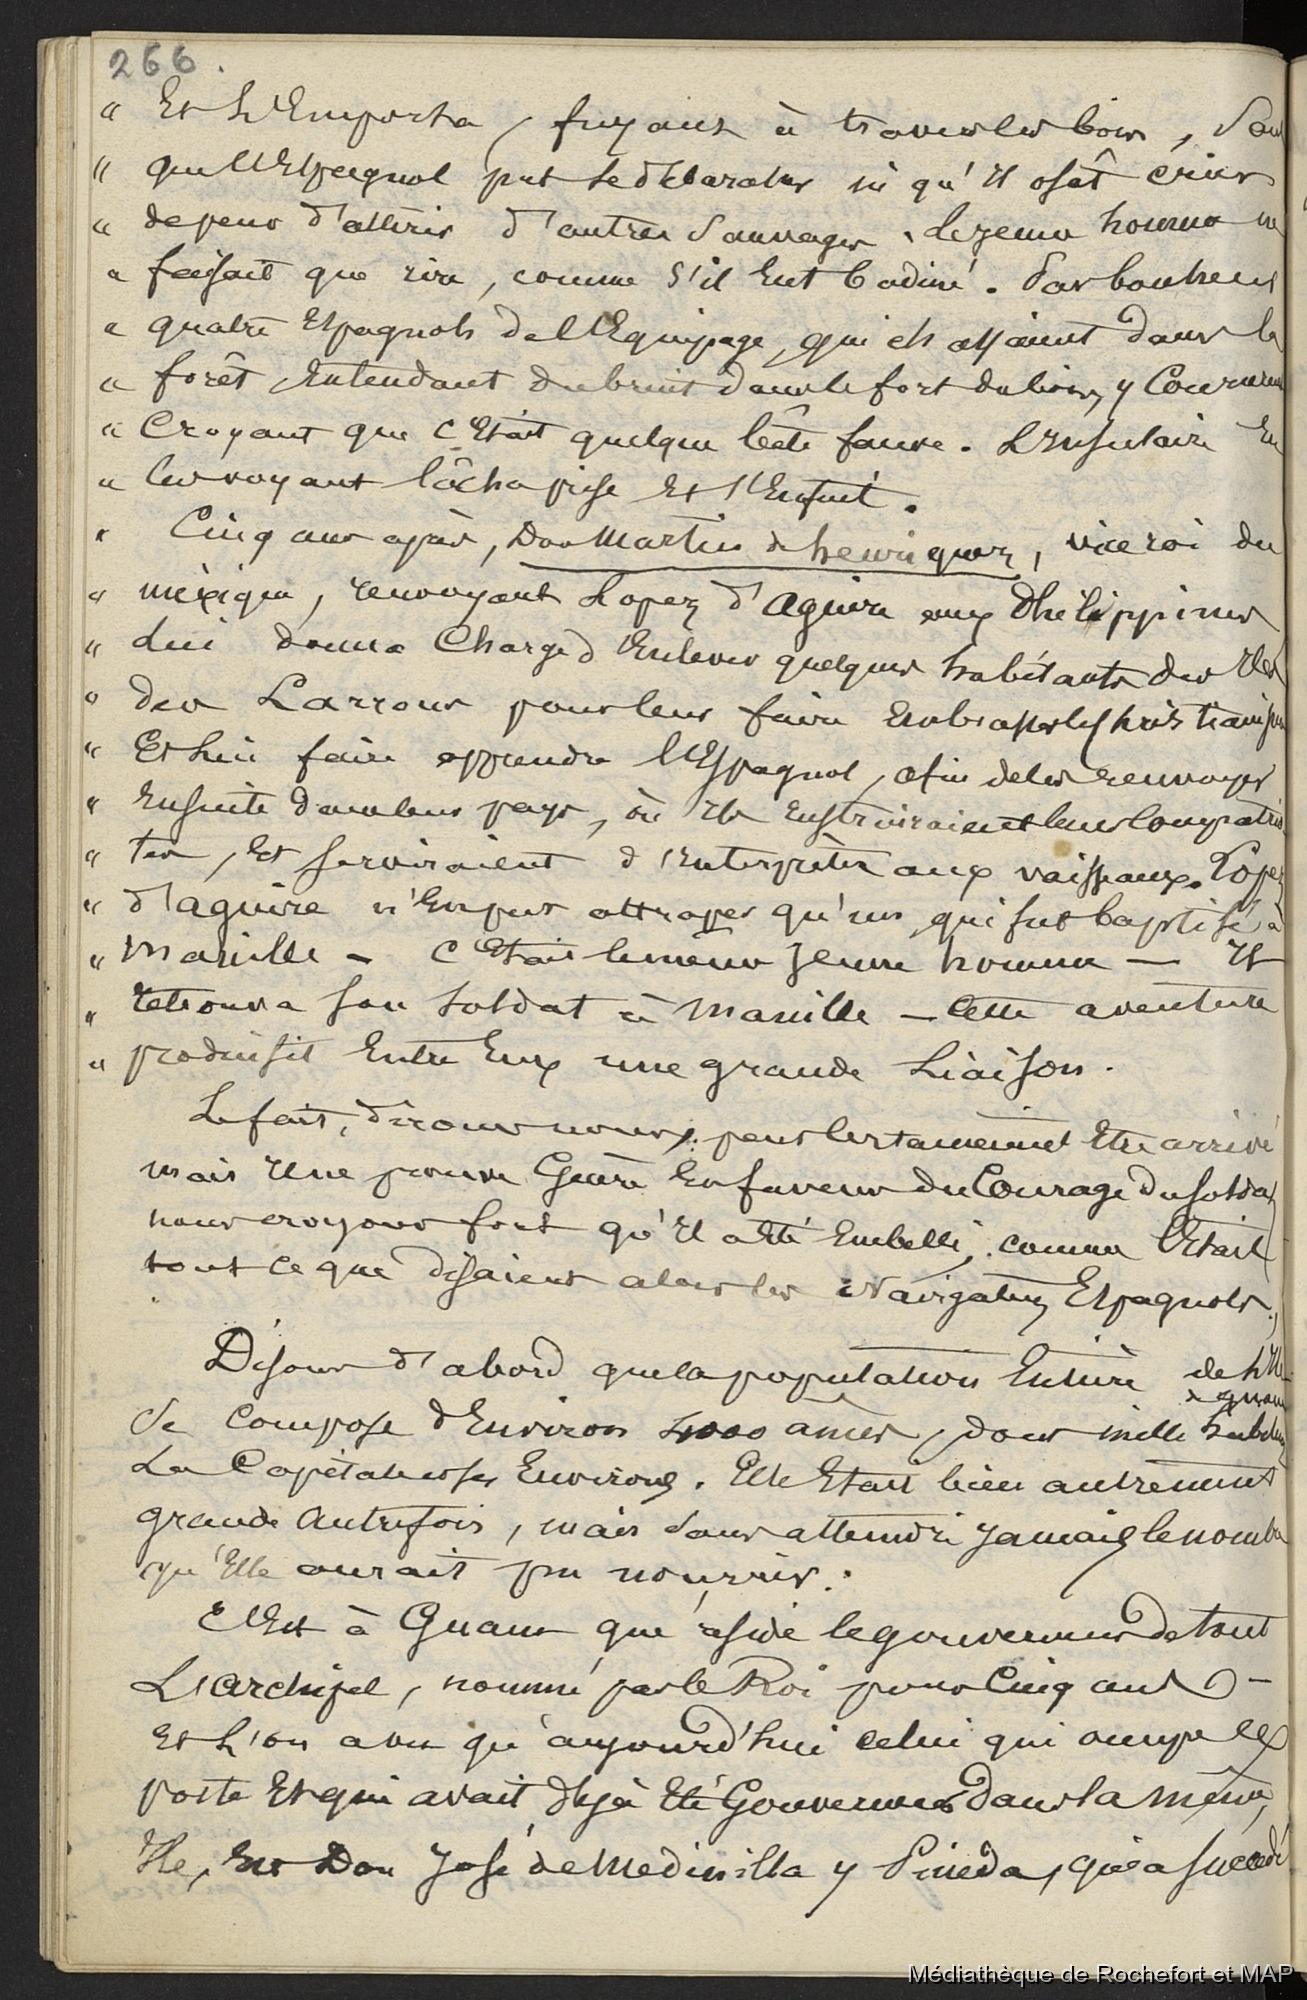 266.
" Et l'Emporta, fuyant à travers les bois, Sans
" que l'Espagnol put se débarasser ni qu'il osât crier
" de peur d'attirer d'autres Sauvages. le jeune homme ne
" faisait que rire, comme s'il eut badiné. Par bonheur
" quatre Espagnols de l'Equipage, qui chassaient dans la
" forêt, Entendant du bruit dans le fort du bois, y Coururent
" Croyant que c'Etait quelque bête fauve. L'Insulaire En
" les voyant lâcha prise Et s'Enfuit.
" Cinq ans après, Don Martin de henriquez, vice roi du
" méxique, renvoyant Lopez d'Aguire aux Philippines
" lui donna Charge d'Enlever quelques habitants des Iles
" des Larrons pour leur faire Embrasser le Christianisme
" Et lui faire apprendre l'Espagnol, afin de les renvoyer
" Ensuite dans leur pays, où Ils Instruiraient leurs Compatrio-
" tes, Et serviraient d'Interprètes aux vaisseaux. Lopez
" d'aguire n'En put attraper qu'un, qui fut baptisé à
" Manille - C'Etait le même jeune homme - Il
" retrouva son Soldat à Manille - Cette aventure
" produisit Entre Eux une grande Liaison.
Le fait, dirons nous, peut certainement Etre arrivé
mais Il ne prouve Guère En faveur du Courage du soldat
nous croyons fort qu'Il a Eté Embelli, comme l'Etait
tout ce que disaient alors les Navigateurs Espagnols.
Disons d'abord que la population Entière de l'Ile
de guam
Se Compose d'Environ 4000 ames, dont mille habitent
La Capitale et ses Environs. Elle Etait bien autrement
grande Autrefois, mais sans atteindre jamais le nombre
qu'Elle aurait pu nourrir.
C'Est à Guam que réside le gouverneur de tout
L'archipel, nommé par le Roi pour Cinq ans -
Et l'on a vu qu'aujourd'hui celui qui occupe ce
poste Et qui avait déjà Eté Gouverneur dans la même
Ile, Est Don José de Medinilla y Pinéda, qui a succédé
Médiathèque de Rochefort et MAP